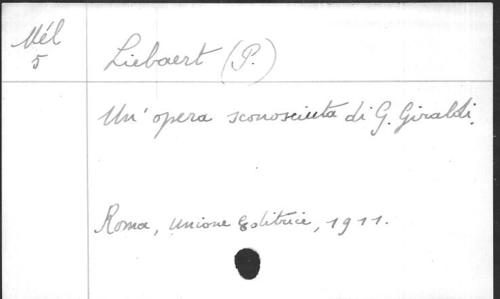 Mél
5
Liebaert (P.)
Un' opera sconosciuta di G. Giraldi.
Roma, Unione Editrice, 1911.